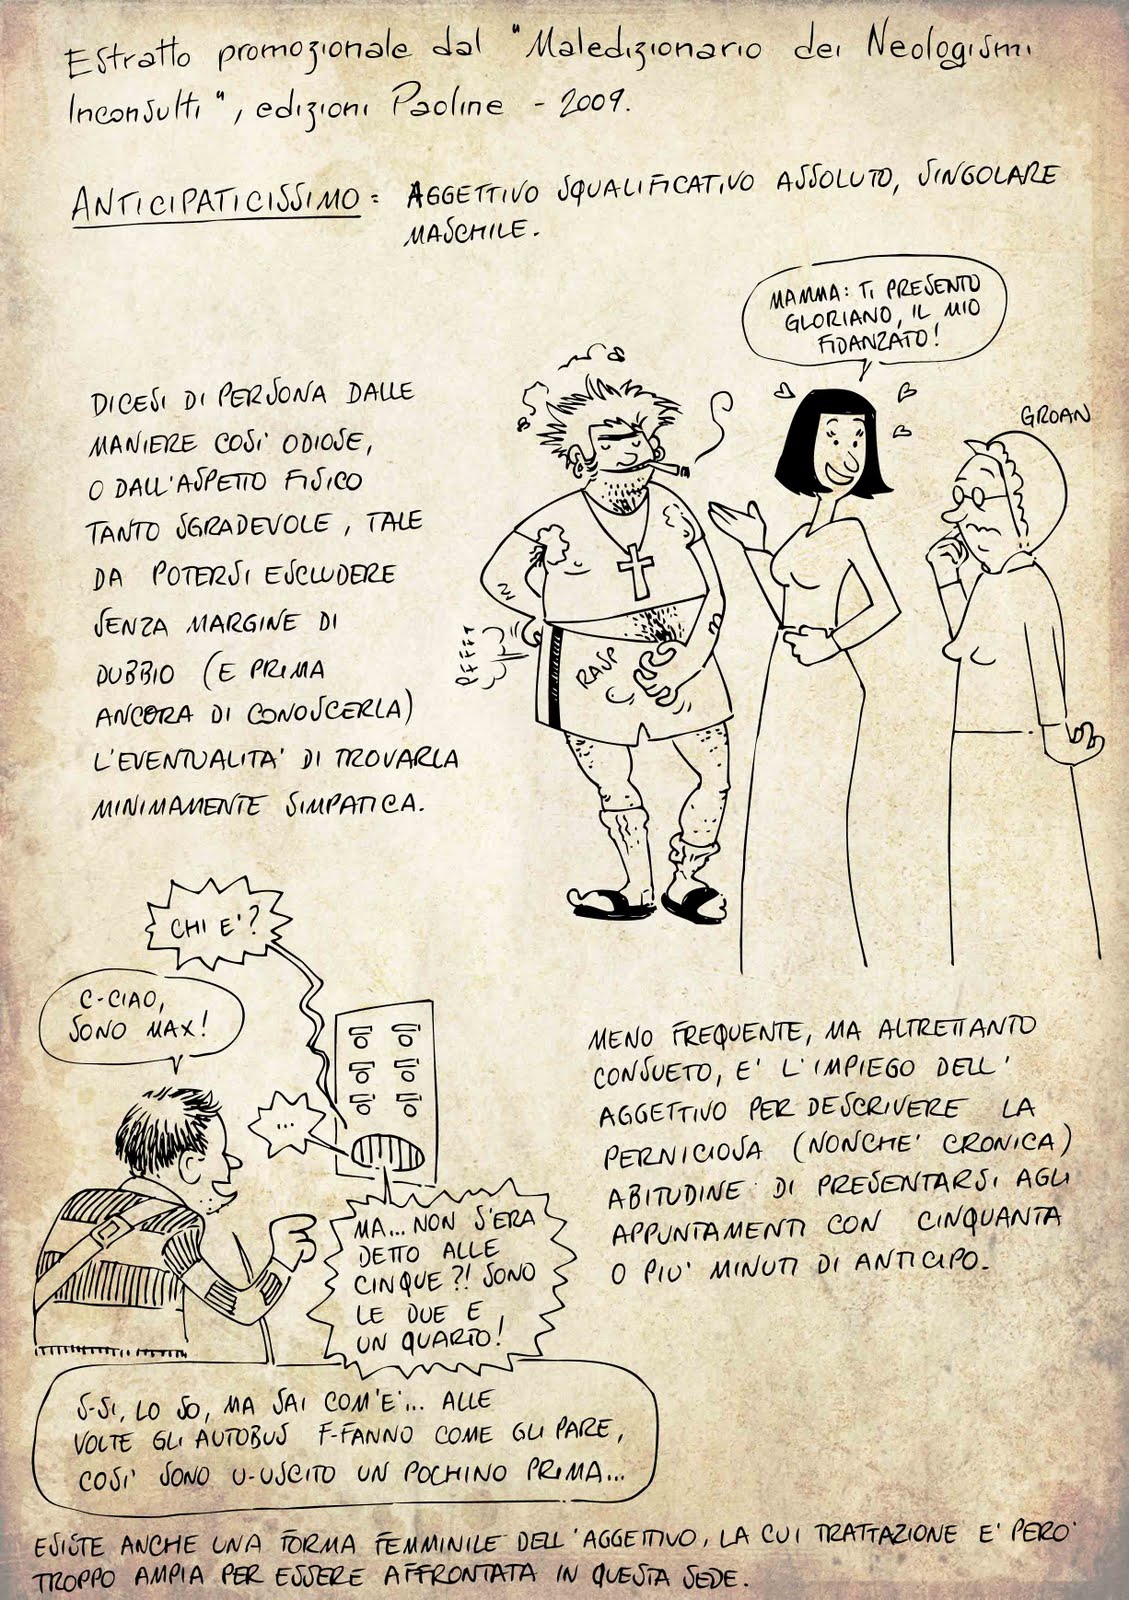 Estratto promozionale dal "Maledizionario dei Neologismi
Inconsulti", edizioni Paoline - 2009.
ANTICIPATICISSIMO = AGGETTIVO SQUALIFICATIVO ASSOLUTO, SINGOLARE
MASCHILE.
MAMMA: TI PRESENTO
GLORIANO, IL MIO
FIDANZATO!
GROAN
DICESI DI PERSONA DALLE
MANIERE COSI' ODIOSE,
O DALL'ASPETTO FISICO
TANTO SGRADEVOLE, TALE
DA POTERSI ESCLUDERE
SENZA MARGINE DI
DUBBIO (E PRIMA
ANCORA DI CONOSCERLA)
L'EVENTUALITA' DI TROVARLA
MINIMAMENTE SIMPATICA.
PFFFT
RASP
CHI E'?
C-CIAO,
SONO MAX!
...
MA... NON S'ERA
DETTO ALLE
CINQUE?! SONO
LE DUE E
UN QUARTO!
S-SI, LO SO, MA SAI COM'E'... ALLE
VOLTE GLI AUTOBUS F-FANNO COME GLI PARE,
COSI' SONO U-USCITO UN POCHINO PRIMA...
MENO FREQUENTE, MA ALTRETTANTO
CONSUETO, E' L'IMPIEGO DELL'
AGGETTIVO PER DESCRIVERE LA
PERNICIOSA (NONCHE' CRONICA)
ABITUDINE DI PRESENTARSI AGLI
APPUNTAMENTI CON CINQUANTA
O PIU' MINUTI DI ANTICIPO.
ESISTE ANCHE UNA FORMA FEMMINILE DELL'AGGETTIVO, LA CUI TRATTAZIONE E' PERO'
TROPPO AMPIA PER ESSERE AFFRONTATA IN QUESTA SEDE.